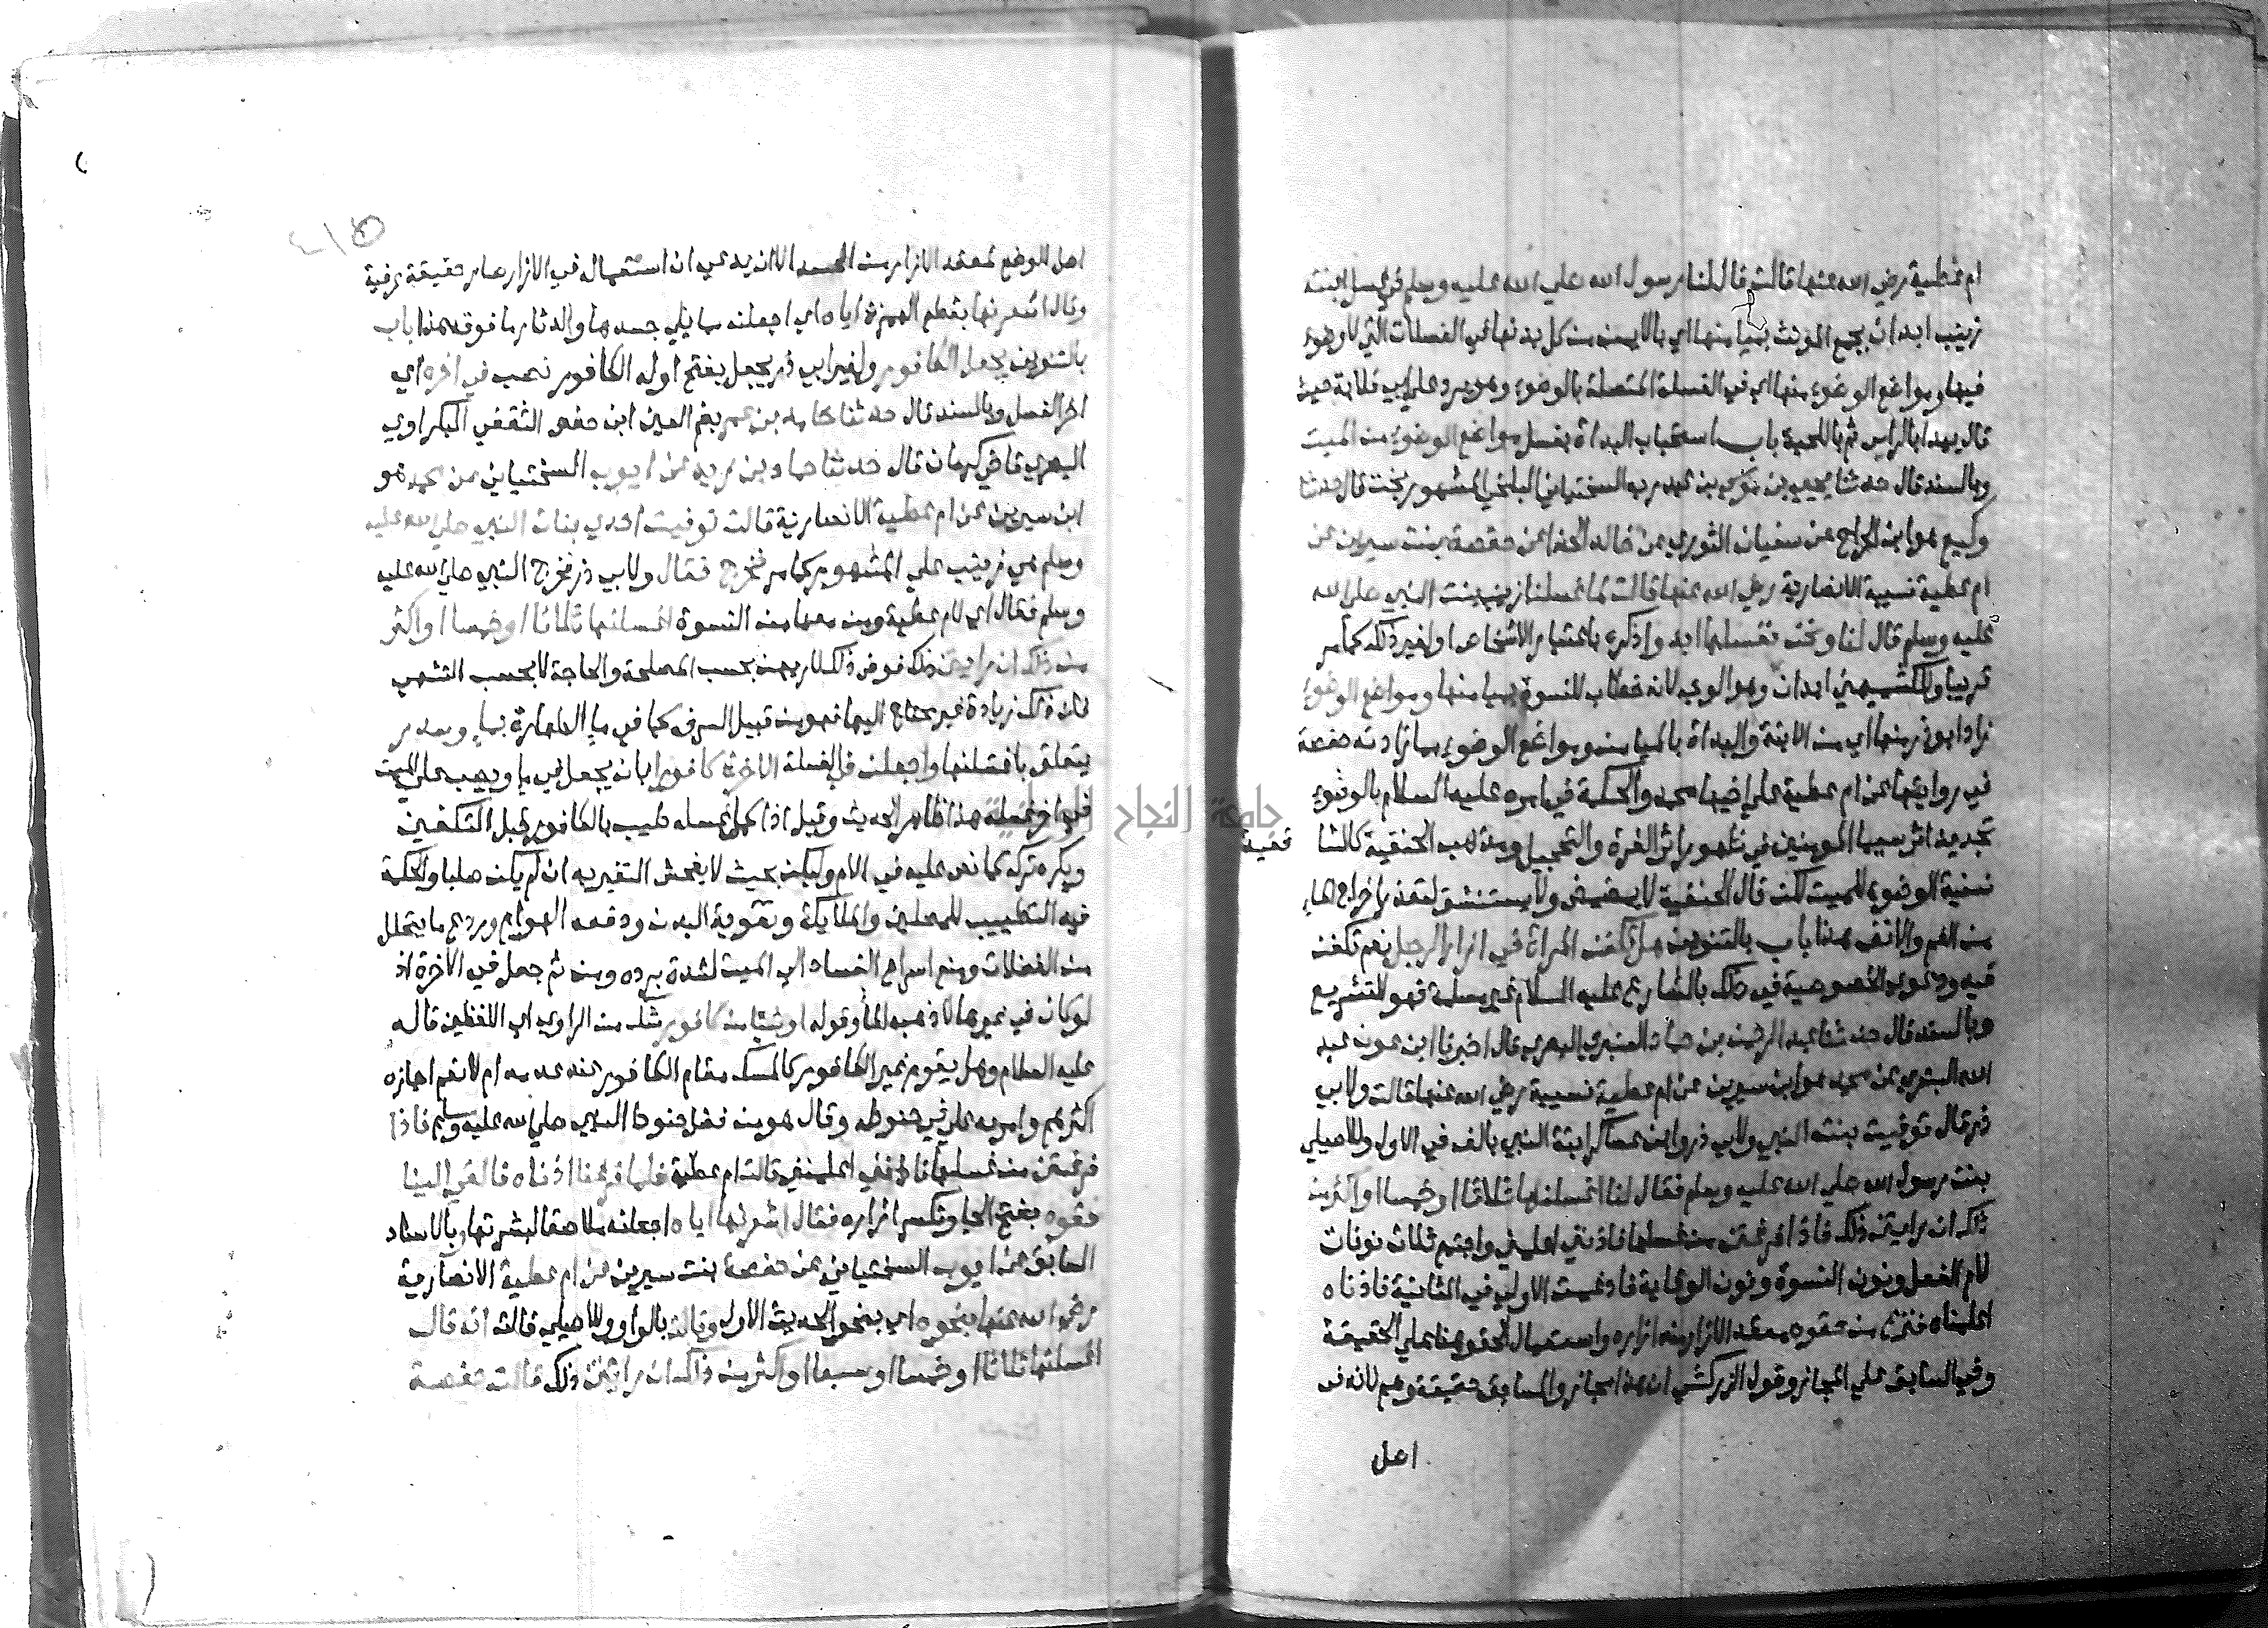 ام عطية رضي الله عنها قالت قال لنا رسول الله صلي الله عليه وسلم في غسل ابنته
زينب ابدان بجمع المونث بميامنها اي بالايمن من كل بدنها في الغسلات التي لا وضوء
فيها ومواضع الوضوء منها اي في الغسلة المتصلة بالوضوء وهو يرد علي ابي قلابة حيث
قال يبدا بالراس ثم باللحية باب استحباب البداة بغسل مواضع الوضوء من الميت
وبالسند قال حدثنا يحيي بن موسي بن عبد ربه السختياني البلخي المشهور بخت قال حدثنا
وكيع هو ابن الجراح عن سفيان الثوري عن خالد الحذا عن حفصة بنت سيرين عن
ام عطية نسيبة الانصارية رضي الله عنها قالت لما غسلنا زينب بنت النبي صلي الله
عليه وسلم قال لنا ونحن نغسلها ابدوا ذكره باعتبار الاشخاص او لغير ذلك كما مر
قريبا وللكشميهني ابدان وهو الوجه لانه خطاب للنسوة بميامنها ومواضع الوضوء
زاد ابو ذر منها اي من الابنة والبداة بالميامن ومواضع الوضوء مما زادته حفصة
في روايتها عن ام عطية علي اخيها محمد والحكمة في امره عليه السلام بالوضوء
تجديد اثر سيما المومنين في ظهور اثر الغرة والتحجيل ومذهب الحنفية كالشا فعية
سنية الوضوء للميت لكن قال الحنفية لا يمضمض ولا يستنشق لتعذر اخراج الماء
من الفم والانف هذا باب بالتنوين هل تكفن المراة في ازار الرجل نعم تكفن
فيه ودعوي الخصوصية في ذلك بالشارع عليه السلام غير مسلمة فهو للتشريع
وبالسند قال حدثنا عبد الرحمن بن حماد العنبري البصري قال اخبرنا ابن عون عبد
الله البصري عن محمد هو ابن سيرين عن ام عطية نسيبة رضي الله عنها قالت ولابي
ذر قال توفيت بنت النبي ولابي ذر وابن عساكر ابنة النبي بالف في الاول وللاصيلي
بنت رسول الله صلي الله عليه وسلم فقال لنا اغسلنها ثلاثا او خمسا او اكثر من
ذلك ان رايتن ذلك فاذا فرغتن من غسلها فاذنني اعلمني واجتمع ثلاث نونات
لام الفعل ونون النسوة ونون الوقاية فادغمت الاولي في الثانية فاذناه
اعلمناه فنزع من حقوه معقد الازار منه ازاره واستعمال الحقو هنا علي الحقيقة
وفي السابق علي المجاز وقول الزركشي ان هذا مجاز والسابق حقيقة وهم لانه في
اصل
اصل الوضع لمعقد الازار من الجسد الا ان يدعي ان استعماله في الازار صار حقيقة عرفية
وقال اشعرنها بقطع الهمزة اياه اي اجعلنه مما يلي جسدها والدثار ما فوقه هذا باب
بالتنوين يجعل الكافور ولغير ابي ذر يجعل بفتح اوله الكافور نصب في اخره اي
اخر الغسل وبالسند قال حدثنا حامد بن عمر بضم العين ابن حفص الثقفي البكراوي
البصري قاضي كرمان قال حدثنا حماد بن زيد عن ايوب السختياني عن محمد هو
ابن سيرين عن ام عطية الانصارية قالت توفيت احدي بنات النبي صلي الله عليه
وسلم هي زينب علي المشهور كما مر فخرج فقال ولابي ذر فخرج النبي صلي الله عليه
وسلم فقال اي لام عطية ومن معها من النسوة اغسلنها ثلاثا او خمسا او اكثر
من ذلك ان رايتن ذلك فوض ذلك لارايهن بحسب المصلحة والحاجة لا بحسب التشهي
فان ذلك زيادة غير محتاج اليها فهو من قبيل السرف كما في ماء الطهارة بماء وسدر
يتعلق باغسلنها واجعلن في الغسلة الاخرة كافورا بان يجعل في ماء ويصب علي الميت
في اخر غسله هذا ظاهر الحديث وقيل اذا كمل غسله طيب بالكافور قبل التكفين
ويكره تركه كما نص عليه في الام وليكن بحيث لا يفحش التغير به ان لم يكن صلبا والحكمة
فيه التطييب للمصلين والملايكة وتقوية البدن ودفعه الهوام وردع ما يتحلل
من الفضلات ومنع اسراع الفساد الي الميت لشدة برده ومن ثم جعل في الاخرة اذ
لو كان في غيرها لاذهبه الما وقوله او شيئا من كافور شك من الراوي اي اللفظين قاله
عليه السلام وهل يقوم غير الكافور كالمسك مقام الكافور عند عدمه ام لا نعم اجازه
اكثرهم وامر به علي في حنوطه وقال هو من فضل حنوط النبي صلي الله عليه وسلم فاذا
فرغتن من غسلها فاذنني اعلمنني قالت ام عطية فلما فرغنا اذناه فالقي الينا
حقوه بفتح الحا وتكسر ازاره فقال اشعرنها اياه اجعلنه ملاصقا لبشرتها وبالاسناد
السابق عن ايوب السختياني عن حفصة بنت سيرين عن ام عطية الانصارية
رضي الله عنها بنحوه اي بنحو الحديث الاول وقالت بالواو وللاصيلي قالت انه قال
اغسلنها ثلاثا او خمسا او سبعا او اكثر من ذلك ان رايتن ذلك قالت حفصة
جامعة النجاح